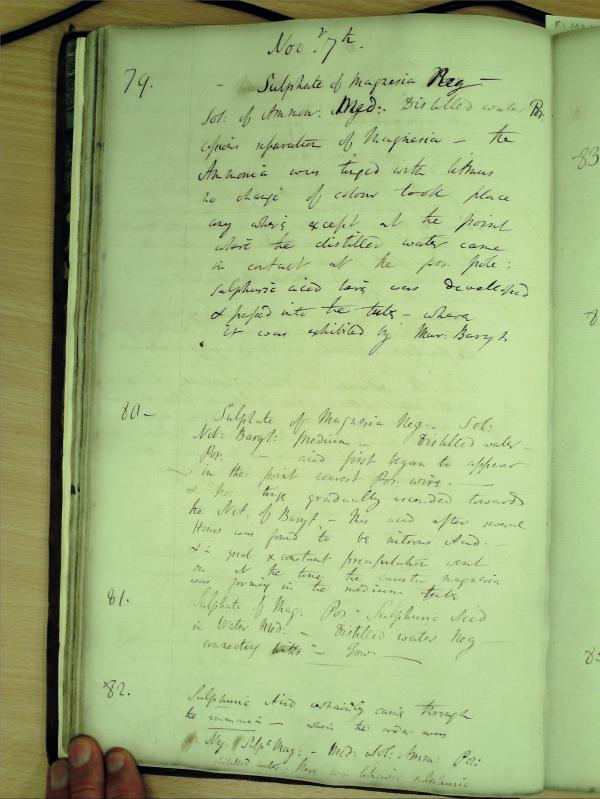 Novr. 7th.
79. - Sulphate of Magnesia Neg -
Sol: of Ammon: Med:. Distilled water Pos
Copious separation of Magnesia - the
Ammonia was tinged with litmus
no change of colour took place
any where except at the point
where the distilled water came
in contact at the pos. pole:
Sulphuric acid here was developed
& passed into the tube - where
it was exhibited by Mur: Baryt
80 - Sulphate of Magnesia Neg - Sol:
Nit: Baryt: Medium - Distilled water -
Pos: - acid first began to appear
in the point nearest Pos. wire. -
& the tinge gradually ascended towards
the Nit: of Baryt - this acid after several
Hours was found to be nitrous Acid. -
& a great & constant precipitation went
on at the time the caustic magnesia
was forming in the medium tube
81. Sulphate of Mag: Pos - Sulphuric Acid
in Water Med: - Distilled water Neg -
connecting -
82. Sulphuric Acid certainly came through
the ammonia - when the order was
Neg. Sulpt Mag: - Med: Sol: Amm: Pos:
distilled water; there was likewise sulphuric